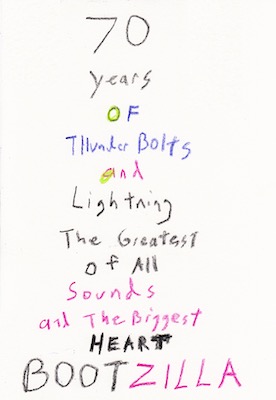 70
years
OF
Thunder Bolts
and
Lightning
The Greatest
of All
Sounds
and The Biggest
HEART
BOOTZILLA